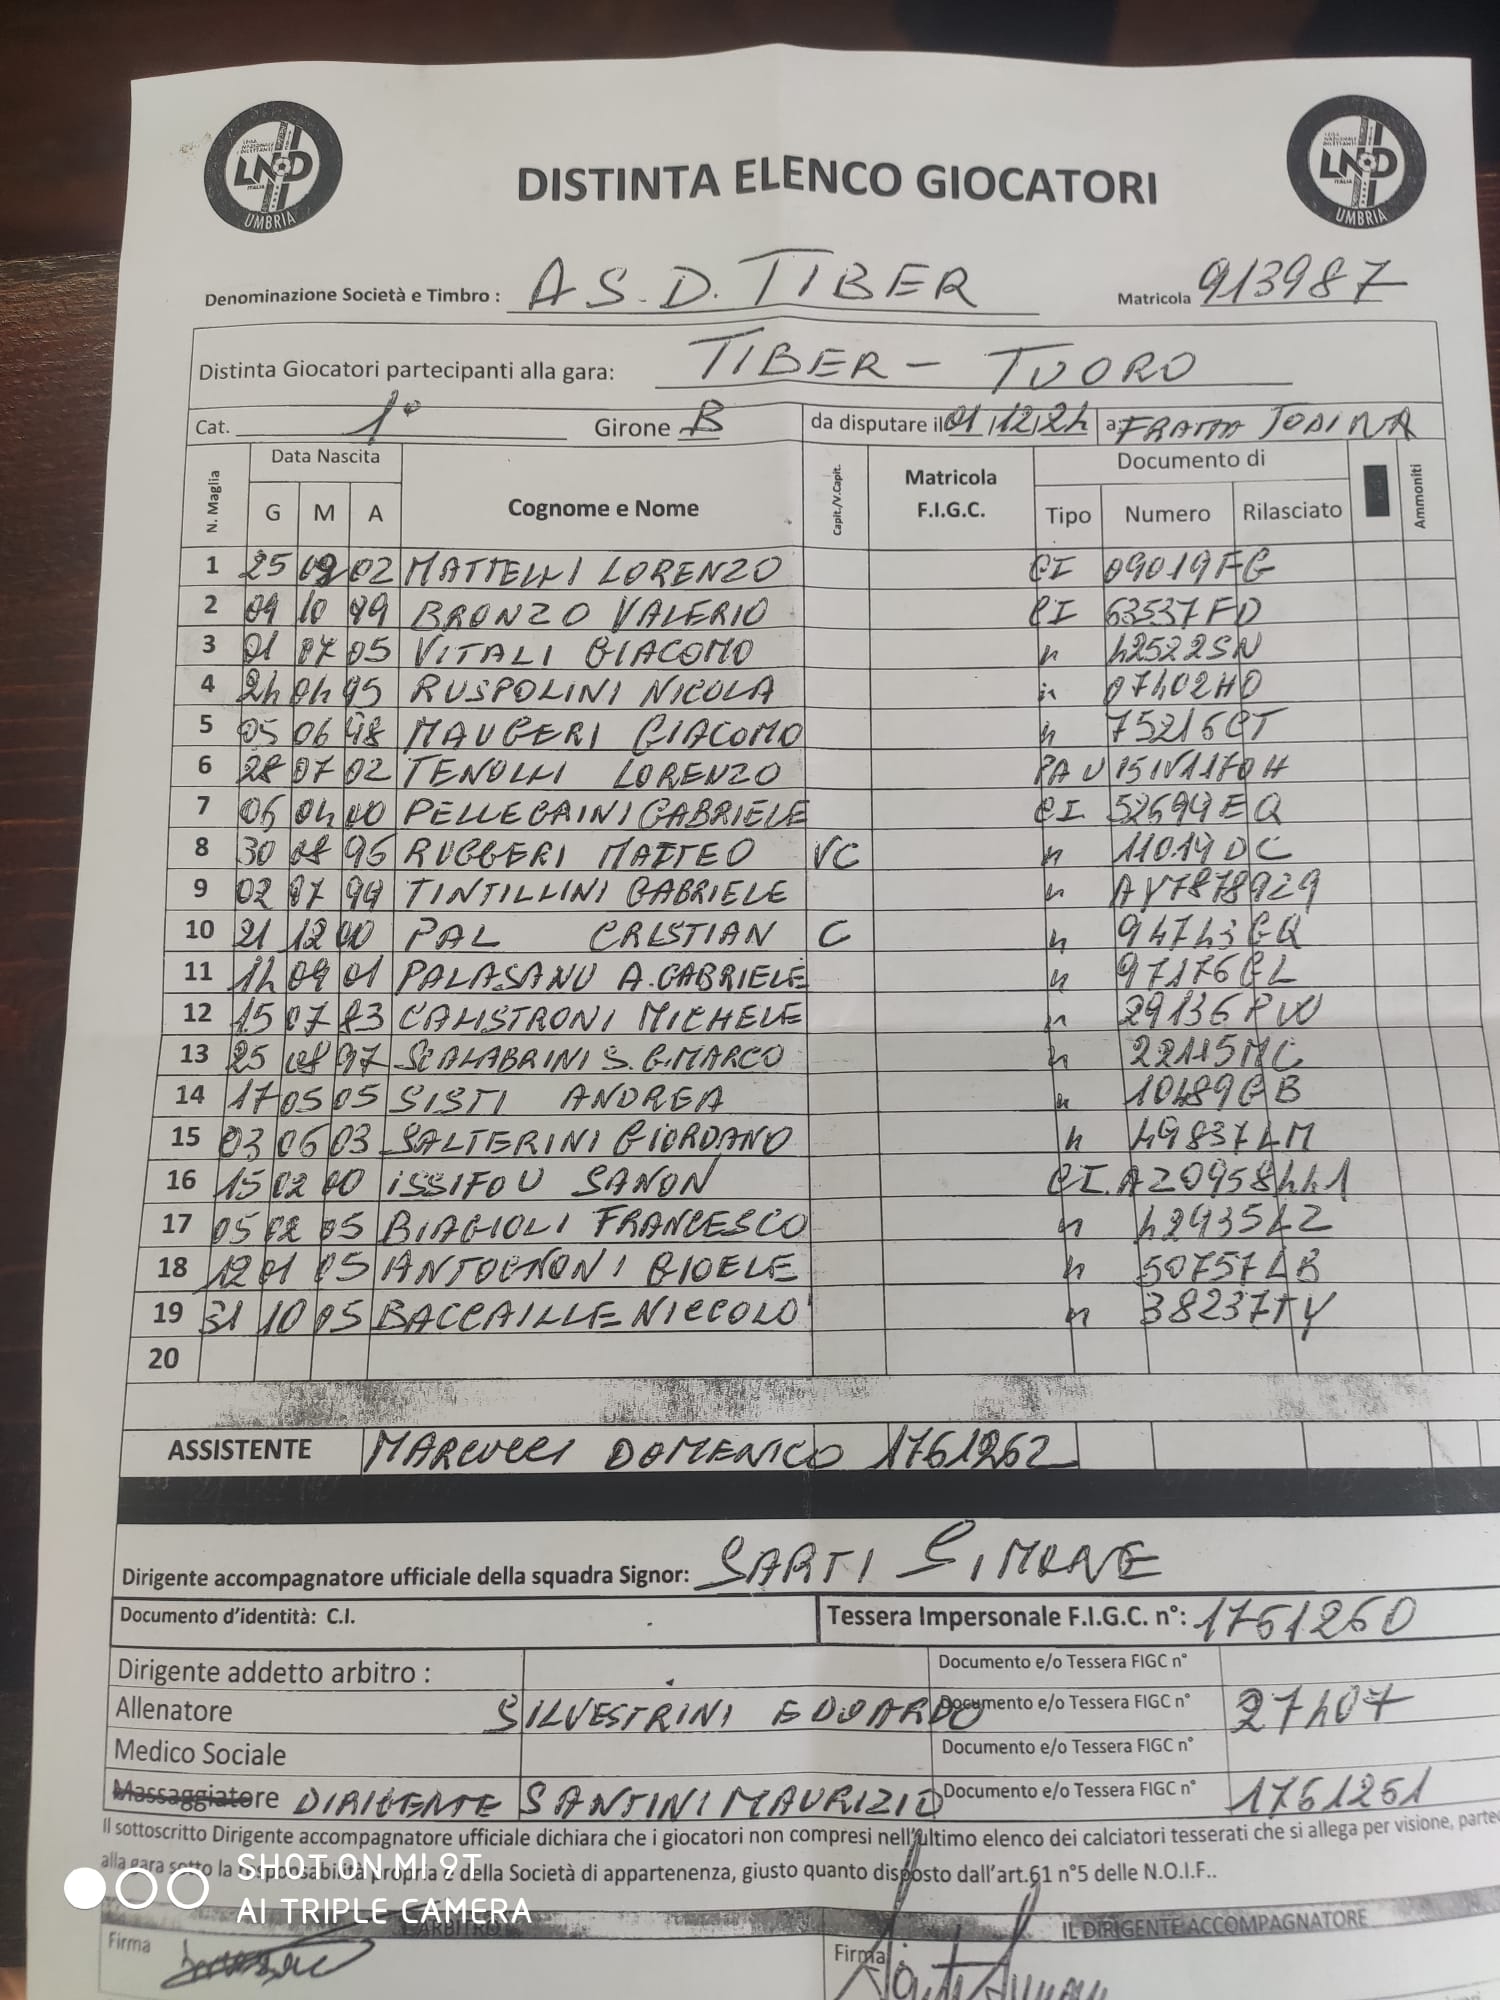 LND
UMBRIA
DISTINTA ELENCO GIOCATORI
LND
UMBRIA
Denominazione Società e Timbro : A.S.D. TIBER Matricola 913987
Distinta Giocatori partecipanti alla gara: TIBER - TUORO
Cat. 1° Girone B da disputare il 01/12/24 a: FRATTA TODINA
N. Maglia Data Nascita Cognome e Nome Capit./V.Capit. Matricola F.I.G.C. Documento di Ammoniti
G M A Tipo Numero Rilasciato
1 25 09 02 MATTELLI LORENZO CI 09019FG
2 09 10 99 BRONZO VALERIO CI 63537FD
3 01 07 05 VITALI GIACOMO " 42522SN
4 24 04 95 RUSPOLINI NICOLA " 07402HD
5 05 06 98 MAUGERI GIACOMO " 75216CT
6 28 07 02 TENOLLI LORENZO PA U
7 06 04 00 PELLEGRINI GABRIELE CI 52699EQ
8 30 08 95 RUGGERI MATTEO VC " 11019DC
9 02 07 94 TINTILLINI GABRIELE " AY7878929
10 21 12 00 PAL CRISTIAN C " 94743GQ
11 14 09 01 PALASANU A.GABRIELE " 97176GL
12 15 07 83 CALISTRONI MICHELE " 29136PW
13 25 08 97 SCALABRINI S. G.MARCO " 22115MC
14 17 05 05 SISTI ANDREA " 10489GB
15 03 06 03 SALTERINI GIORDANO " 49837LM
16 15 02 00 ISSIFOU SANON CI. AZ0958441
17 05 02 05 BIAGIOLI FRANCESCO " 42935LZ
18 12 01 05 ANTOGNONI GIOELE " 50757LB
19 31 10 05 BACCAILLE NICCOLO' " 38237TY
20
ASSISTENTE MARCUCCI DOMENICO 1761262
Dirigente accompagnatore ufficiale della squadra Signor: SARTI SIMONE
Documento d'identità: C.I. Tessera Impersonale F.I.G.C. n°: 1761260
Dirigente addetto arbitro : Documento e/o Tessera FIGC n°
Allenatore SILVESTRINI EDOARDO Documento e/o Tessera FIGC n° 27407
Medico Sociale Documento e/o Tessera FIGC n°
Massaggiatore DIRIGENTE SANTINI MAURIZIO Documento e/o Tessera FIGC n° 1761261
Il sottoscritto Dirigente accompagnatore ufficiale dichiara che i giocatori non compresi nell'ultimo elenco dei calciatori tesserati che si allega per visione,
alla gara sotto la responsabilità propria e della Società di appartenenza, giusto quanto disposto dall'art.61 n°5 delle N.O.I.F..
SHOT ON MI 9T
AI TRIPLE CAMERA
ARBITRO IL DIRIGENTE ACCOMPAGNATORE
Firma Firma